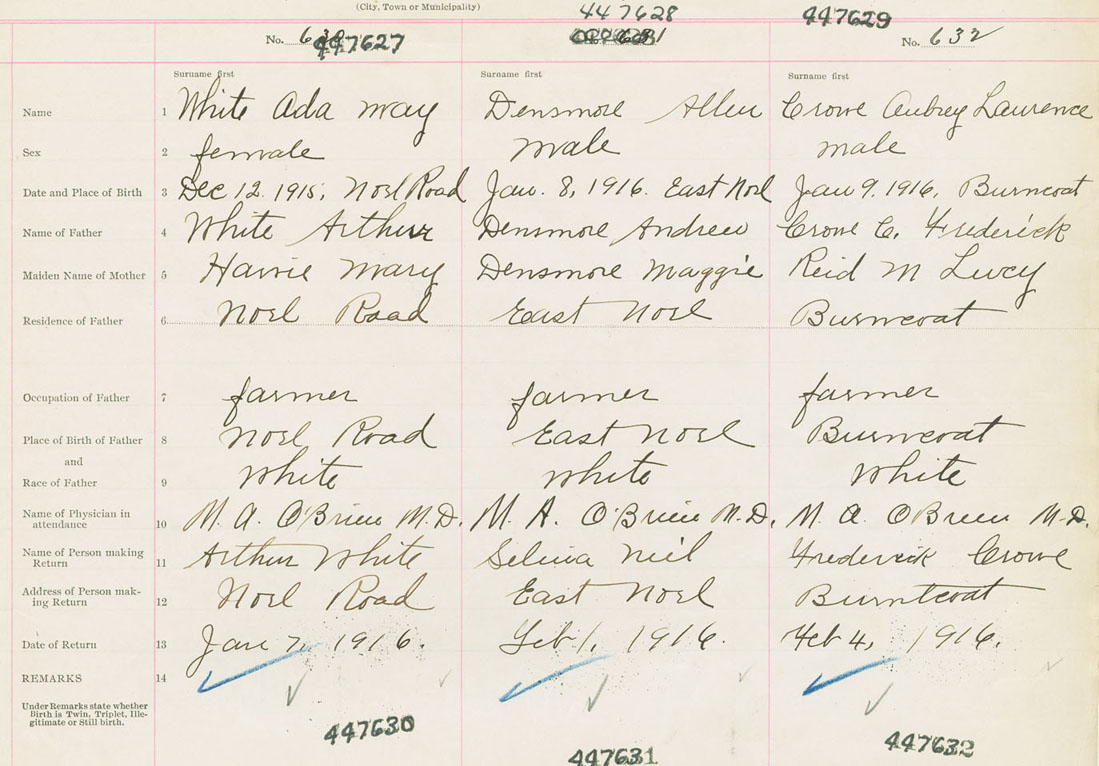 (City, Town or Municipality)
447628
447629
No. 447627
No. 632
Surname first Surname first Surname first
Name 1 White Ada May Densmore Allen Crowe Aubrey Laurence
Sex 2 female male male
Date and Place of Birth 3 Dec 12. 1915, Noel Road Jan. 8, 1916. East Noel Jan 9. 1916, Burncoat
Name of Father 4 White Arthur Densmore Andrew Crowe C. Frederick
Maiden Name of Mother 5 Mary Densmore Maggie Reid M Lucy
Residence of Father 6 Noel Road East Noel Burncoat
Occupation of Father 7 farmer farmer farmer
Place of Birth of Father 8 Noel Road East Noel Burncoat
and
Race of Father 9 White White White
Name of Physician in
attendance 10 M. A. O'Brien M.D. M. A. O'Brien M.D. M. A. O'Brien M.D.
Name of Person making
Return 11 Arthur White Selina Frederick Crowe
Address of Person mak-
ing Return 12 Noel Road East Noel Burntcoat
Date of Return 13 Jan 7, 1916. Feb 1, 1916. Feb 4, 1916.
REMARKS 14
Under Remarks state whether
Birth is Twin, Triplet, Ille-
gitimate or Still birth.
447630
447631
447632